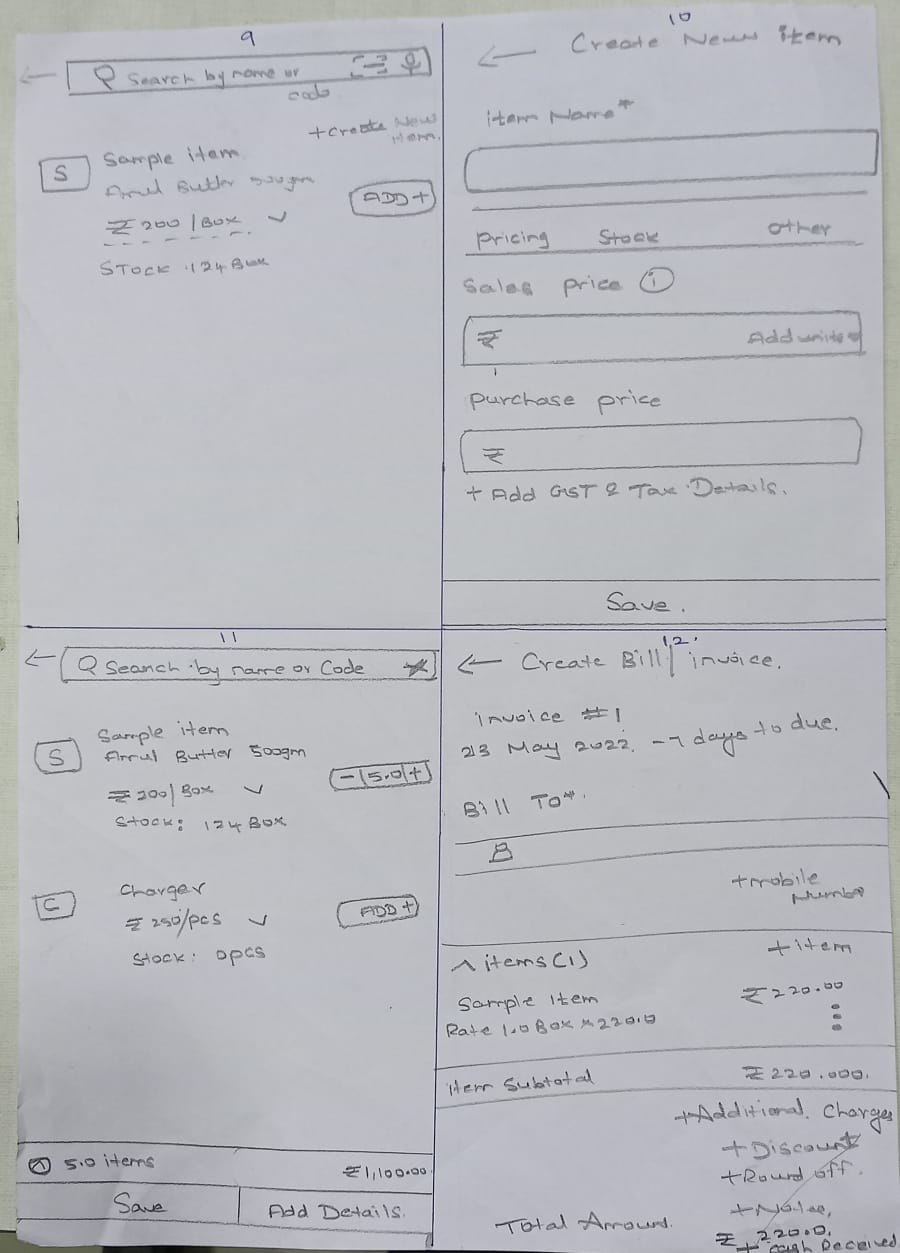 9
Search by name or
code
+Create New
item.
S
Sample item
Amul Butter 500gm
₹ 200 / Box
ADD+
STOCK :124 Box
10
← Create New item
item Name*
Pricing Stock other
Sales price i
₹ Add units
purchase price
₹
+ Add GST & Tax Details.
Save.
11
← Search by name or Code
S
Sample item
Amul Butter 500gm
- 5.0 +
₹ 200/ Box
Stock: 124 Box
C
Charger
₹ 250/pcs
ADD +
Stock: 0pcs
5.0 items
₹1,100.00
Save Add Details.
12.
← Create Bill / invoice.
invoice #1
23 May 2022. -7 days to due.
Bill To*.
+mobile
Number
^ items (1) +item
Sample Item ₹220.00
Rate 1.0 Box × 220.0
item Subtotal ₹ 220.000.
+Additional. Charges
+ Discount
+Round off.
+Notes,
Total Amount. ₹ 220.0.
+ cash Received